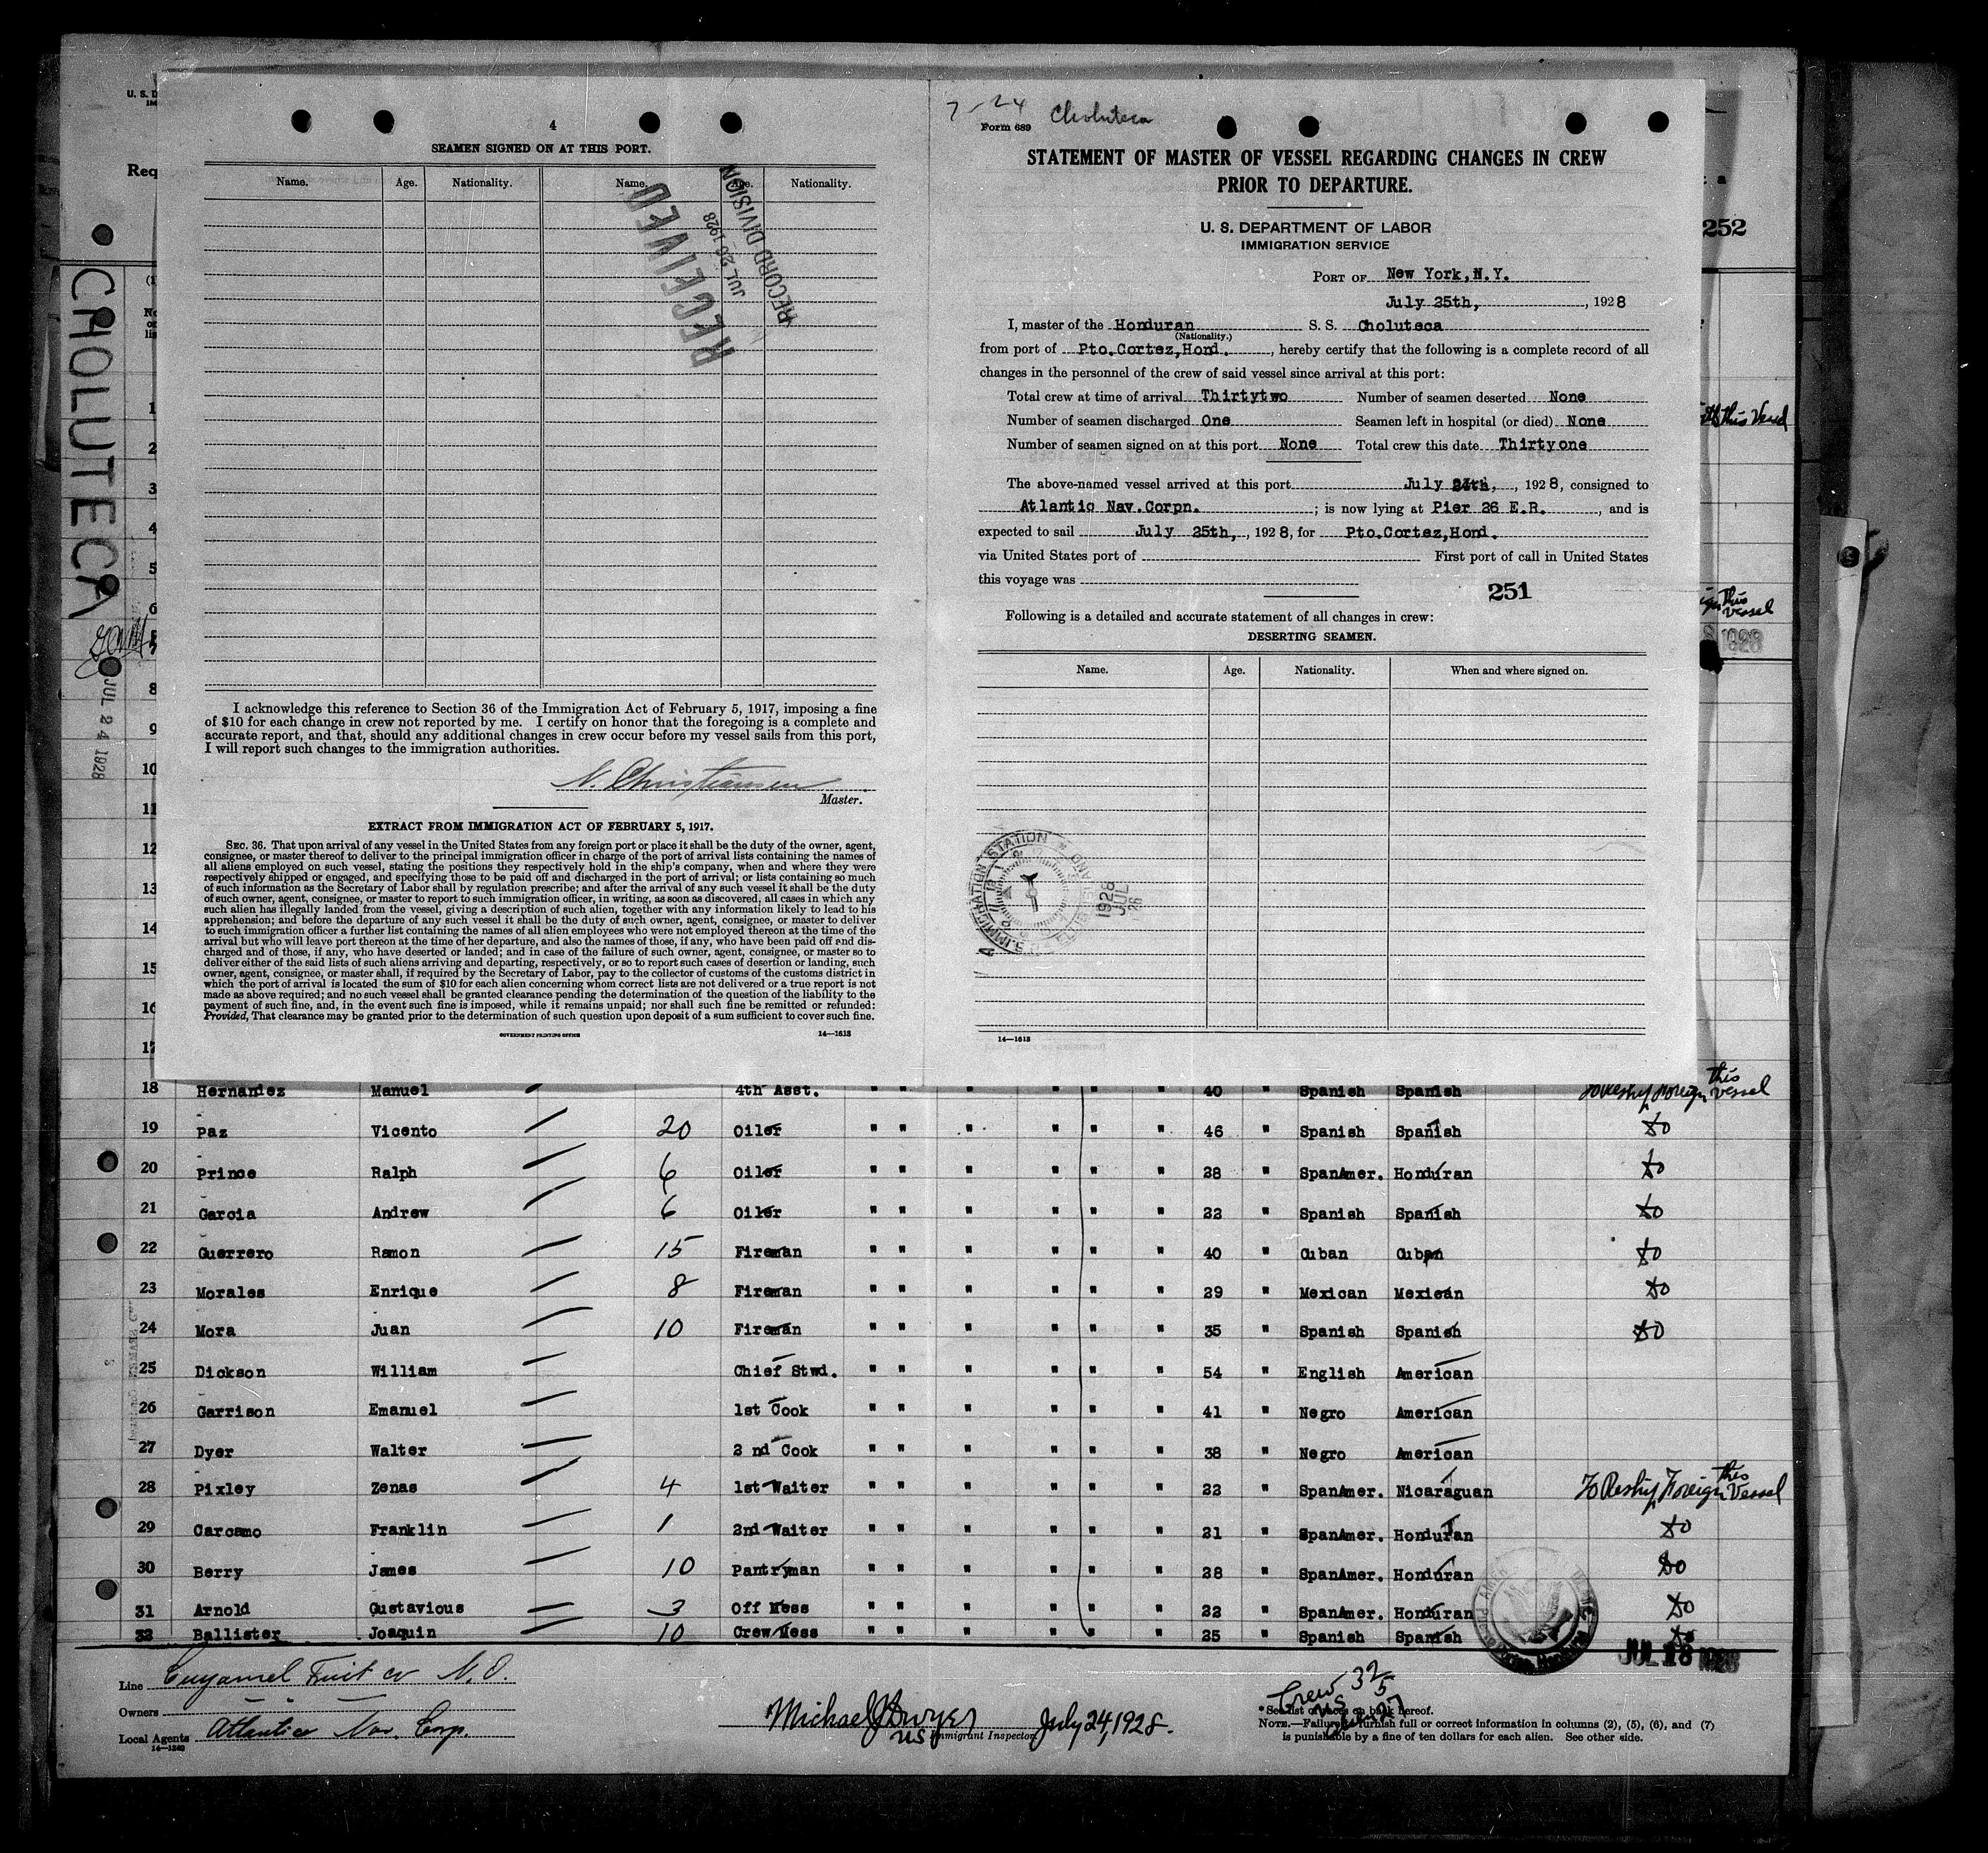 CHOLUTECA
JUL 24 1928
U. S. D
IM
Req
4
SEAMEN SIGNED ON AT THIS PORT.
Name. Age. Nationality. Name. Age. Nationality.
RECEIVED
JUL 26 1928
RECORD DIVISION
I acknowledge this reference to Section 36 of the Immigration Act of February 5, 1917, imposing a fine
of $10 for each change in crew not reported by me. I certify on honor that the foregoing is a complete and
accurate report, and that, should any additional changes in crew occur before my vessel sails from this port,
I will report such changes to the immigration authorities.
N. Christiansen
Master.
EXTRACT FROM IMMIGRATION ACT OF FEBRUARY 5, 1917.
SEC. 36. That upon arrival of any vessel in the United States from any foreign port or place it shall be the duty of the owner, agent,
consignee, or master thereof to deliver to the principal immigration officer in charge of the port of arrival lists containing the names of
all aliens employed on such vessel, stating the positions they respectively hold in the ship's company, when and where they were
respectively shipped or engaged, and specifying those to be paid off and discharged in the port of arrival; or lists containing so much
of such information as the Secretary of Labor shall by regulation prescribe; and after the arrival of any such vessel it shall be the duty
of such owner, agent, consignee, or master to report to such immigration officer, in writing, as soon as discovered, all cases in which any
such alien has illegally landed from the vessel, giving a description of such alien, together with any information likely to lead to his
apprehension; and before the departure of any such vessel it shall be the duty of such owner, agent, consignee, or master to deliver
to such immigration officer a further list containing the names of all alien employees who were not employed thereon at the time of the
arrival but who will leave port thereon at the time of her departure, and also the names of those, if any, who have been paid off and dis-
charged and of those, if any, who have deserted or landed; and in case of the failure of such owner, agent, consignee, or master so to
deliver either of the said lists of such aliens arriving and departing, respectively, or so to report such cases of desertion or landing, such
owner, agent, consignee, or master shall, if required by the Secretary of Labor, pay to the collector of customs of the customs district in
which the port of arrival is located the sum of $10 for each alien concerning whom correct lists are not delivered or a true report is not
made as above required; and no such vessel shall be granted clearance pending the determination of the question of the liability to the
payment of such fine, and, in the event such fine is imposed, while it remains unpaid; nor shall such fine be remitted or refunded:
Provided, That clearance may be granted prior to the determination of such question upon deposit of a sum sufficient to cover such fine.
GOVERNMENT PRINTING OFFICE 14—1613
7-24 Choluteca
Form 689
STATEMENT OF MASTER OF VESSEL REGARDING CHANGES IN CREW
PRIOR TO DEPARTURE.
U. S. DEPARTMENT OF LABOR
IMMIGRATION SERVICE
PORT OF New York, N.Y.
July 25th, , 1928
I, master of the Honduran S. S. Choluteca
(Nationality.)
from port of Pto.Cortez,Hond. , hereby certify that the following is a complete record of all
changes in the personnel of the crew of said vessel since arrival at this port:
Total crew at time of arrival Thirtytwo Number of seamen deserted None
Number of seamen discharged One Seamen left in hospital (or died) None
Number of seamen signed on at this port None Total crew this date Thirtyone
The above-named vessel arrived at this port July 24th, , 1928, consigned to
Atlantic Nav.Corpn. ; is now lying at Pier 26 E.R. , and is
expected to sail July 25th, , 1928, for Pto.Cortez,Hond.
via United States port of First port of call in United States
this voyage was
251
Following is a detailed and accurate statement of all changes in crew:
DESERTING SEAMEN.
Name. Age. Nationality. When and where signed on.
IMMIGRATION STATION
1928
JUL
26
14—1613
252
this Vessel
this
vessel
1928
1
2
3
4
5
6
8
9
10
11
12
13
14
15
16
17
18 Hernandez Manuel 4th Asst. " " " " " " 40 " Spanish Spanish To Reship Foreign this vessel
19 Paz Vicento 20 Oiler " " " " " " 46 " Spanish Spanish do
20 Prince Ralph 6 Oiler " " " " " " 28 " SpanAmer. Honduran do
21 Garcia Andrew 6 Oiler " " " " " " 22 " Spanish Spanish do
22 Guerrero Ramon 15 Fireman " " " " " " 40 " Cuban Cuban do
23 Morales Enrique 8 Fireman " " " " " " 29 " Mexican Mexican do
24 Mora Juan 10 Fireman " " " " " " 35 " Spanish Spanish do
25 Dickson William Chief Stwd. " " " " " " 54 " English American
26 Garrison Emanuel 1st Cook " " " " " " 41 " Negro American
27 Dyer Walter 2 nd Cook " " " " " " 38 " Negro American
28 Pixley Zenas 4 1st Waiter " " " " " " 22 " SpanAmer. Nicaraguan To Reship Foreign this Vessel
29 Carcamo Franklin 1 2nd Waiter " " " " " " 21 " SpanAmer. Honduran do
30 Berry James 10 Pantryman " " " " " " 28 " SpanAmer. Honduran do
31 Arnold Gustavious 3 Off Mess " " " " " " 22 " SpanAmer. Honduran do
32 Ballister Joaquin 10 Crew Mess " " " " " " 25 " Spanish Spanish do
JUL 18 1928
Line Cuyamel Fruit Co N.O.
Owners " " "
Local Agents Atlantic Nav. Corp.
14—1240
Michael J Dwyer
US Immigrant Inspector July 24, 1928.
Crew 32
US 5
* See list of races on back hereof.
NOTE.—Failure to furnish full or correct information in columns (2), (5), (6), and (7)
is punishable by a fine of ten dollars for each alien. See other side.